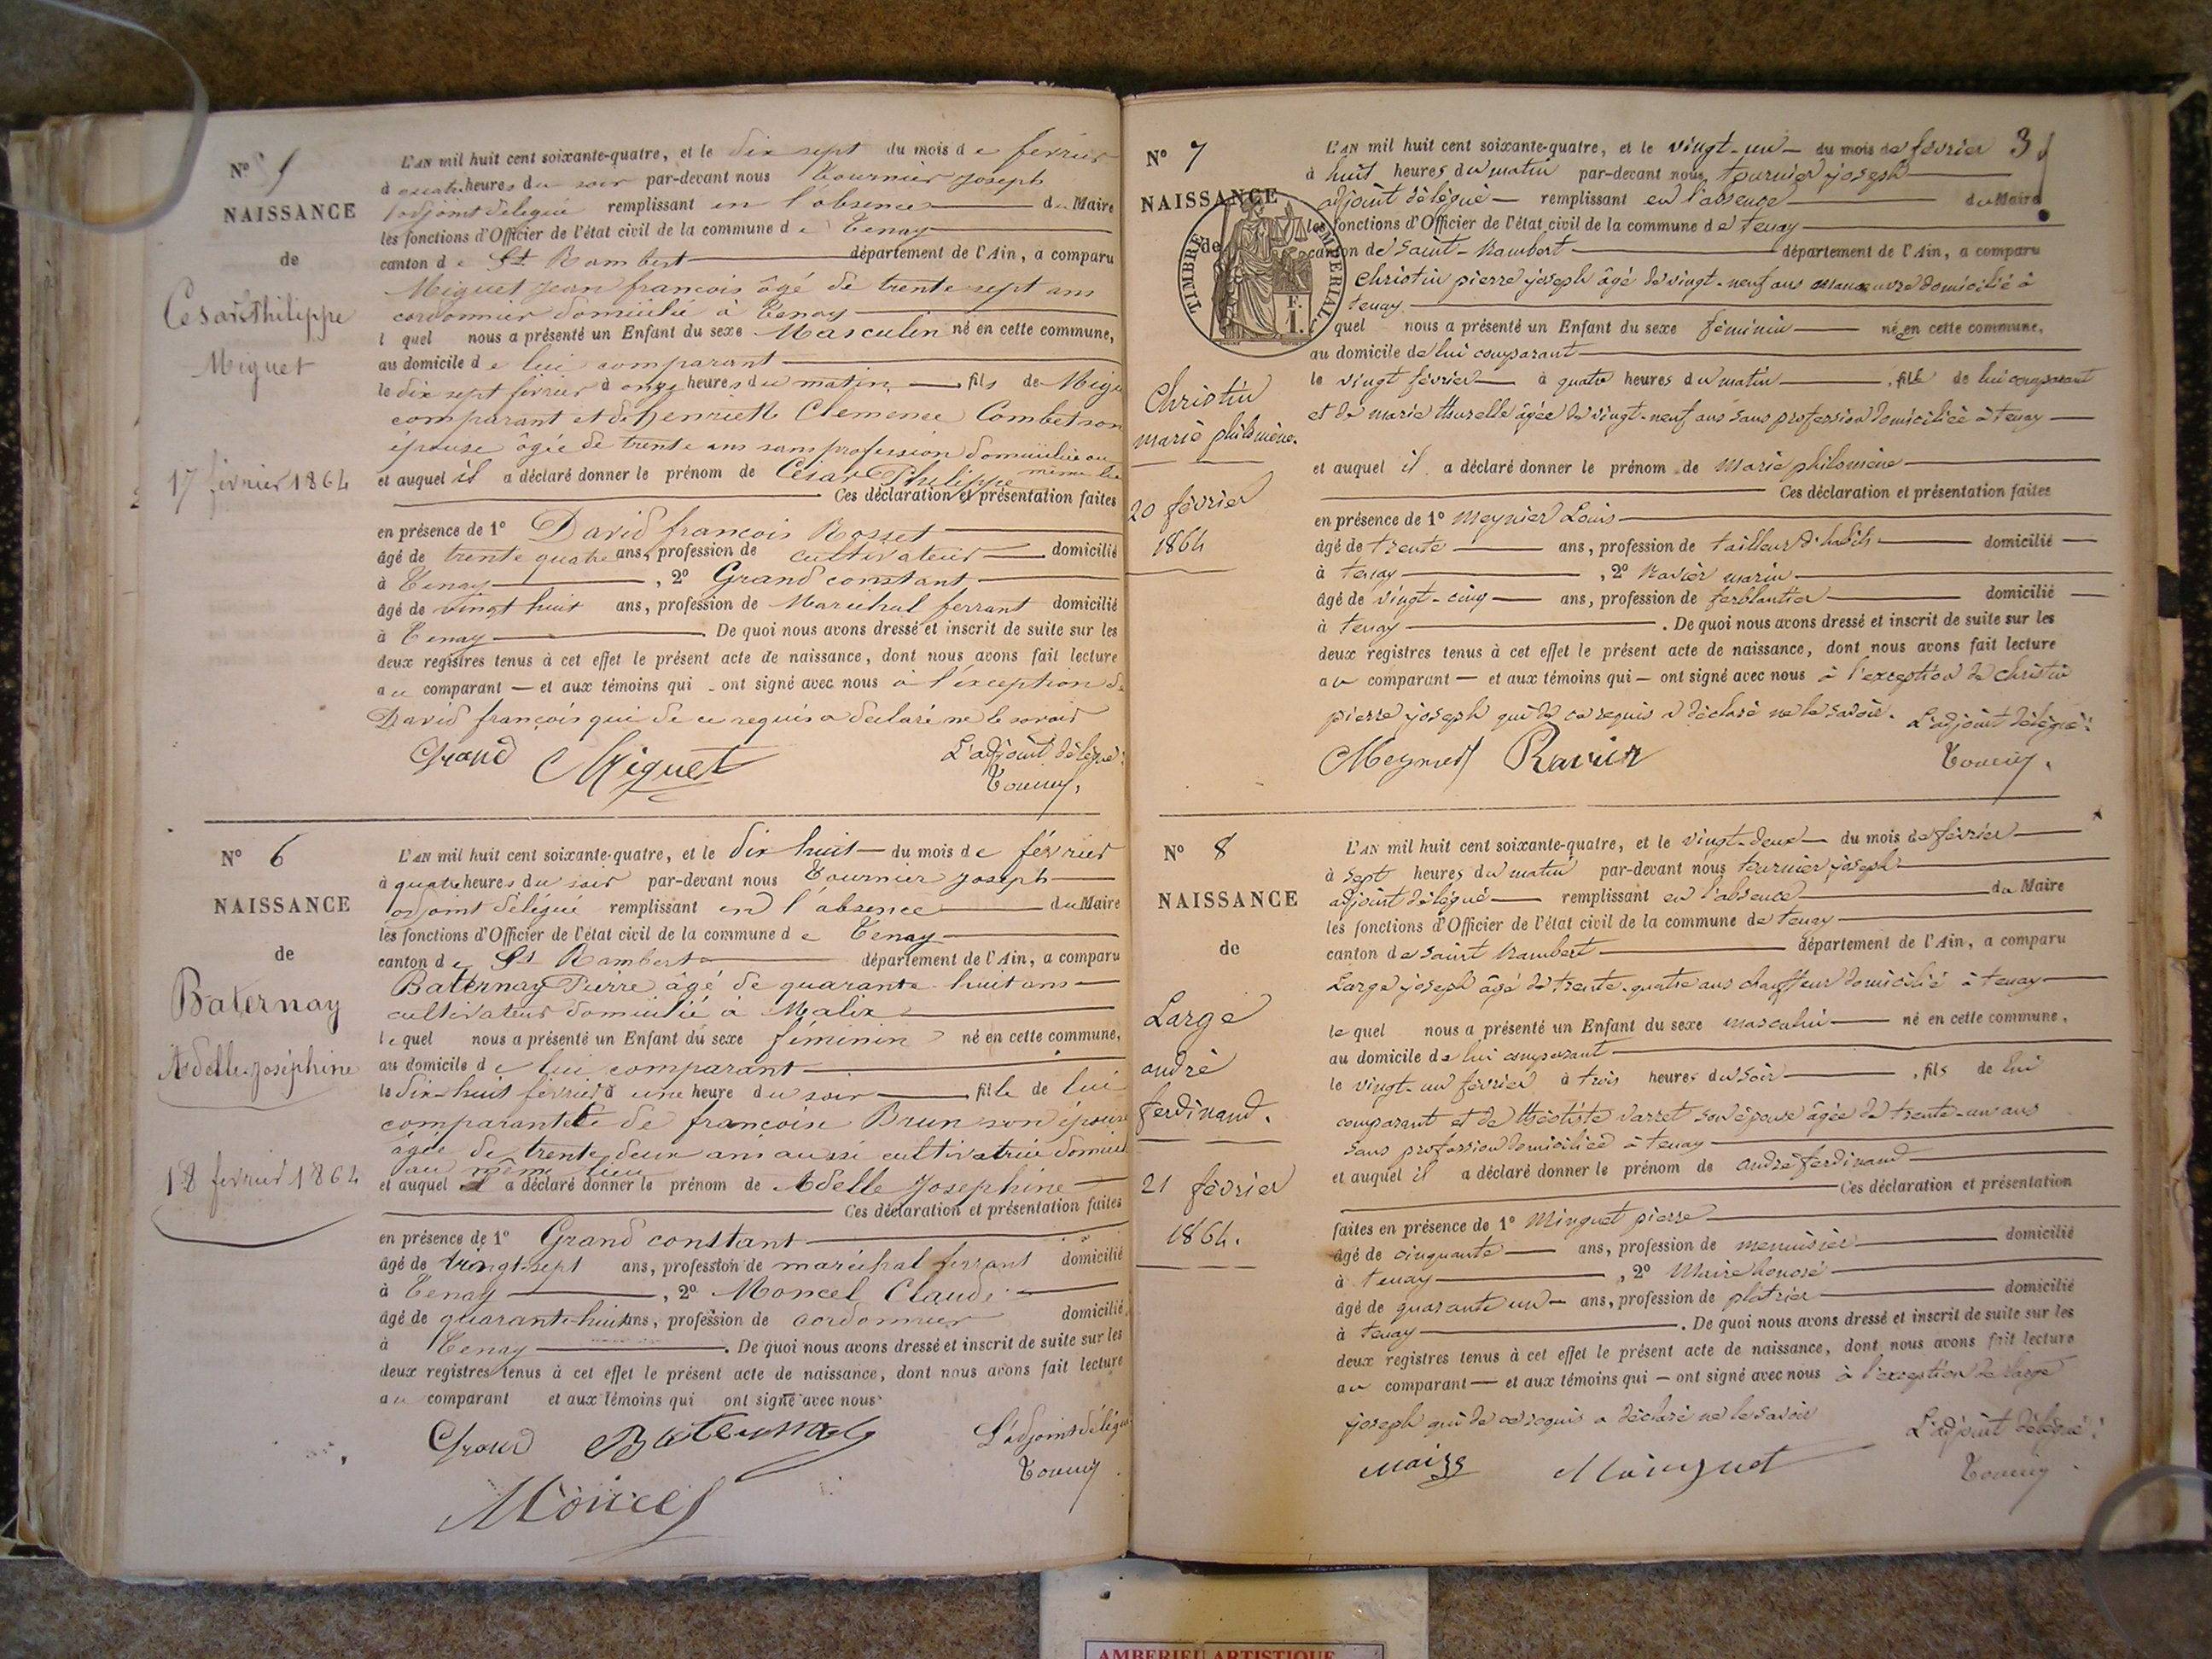 N° 5
NAISSANCE
de
César Philippe
Miguet
17 février 1864
L'AN mil huit cent soixante-quatre, et le dix sept du mois de février
à quatre heures du soir par-devant nous Tournier Joseph
adjoint délégué remplissant en l'absence du Maire
les fonctions d'Officier de l'état civil de la commune de Tenay
canton de St Rambert département de l'Ain, a comparu
Miguet Jean françois âgé de trente sept ans
cordonnier domicilié à Tenay
lequel nous a présenté un Enfant du sexe Masculin né en cette commune,
au domicile de lui comparant
le dix sept février à onze heures du matin fils de Miguet
comparant et de henriette Clemence Combet son
épouse âgée de trente ans sans profession domiciliée au
et auquel il a déclaré donner le prénom de César Philippe même lieu
Ces déclaration et présentation faites
en présence de 1° David françois Rosset
âgé de trente quatre ans, profession de cultivateur domicilié
à Tenay, 2° Grand constant
âgé de vingt huit ans, profession de Maréchal ferrant domicilié
à Tenay. De quoi nous avons dressé et inscrit de suite sur les
deux registres tenus à cet effet le présent acte de naissance, dont nous avons fait lecture
au comparant — et aux témoins qui ont signé avec nous a l'exception de
David françois qui de ce requis a déclaré ne le savoir
Grand Miguet L'adjoint délégué:
N° 6
NAISSANCE
de
Baternay
Adelle Joséphine
18 février 1864
L'AN mil huit cent soixante-quatre, et le dix huit — du mois de février
à quatre heures du soir par-devant nous Tournier Joseph
adjoint délégué remplissant en l'absence du Maire
les fonctions d'Officier de l'état civil de la commune de Tenay
canton de St Rambert département de l'Ain, a comparu
Baternay Pierre âgé de quarante huit ans
cultivateur domicilié à Malix
lequel nous a présenté un Enfant du sexe féminin né en cette commune,
au domicile de lui comparant
le dix-huit février à une heure du soir fille de lui
comparant et de françoise Brun son épouse
âgée de trente deux ans aussi cultivatrice domicil
au même lieu
et auquel il a déclaré donner le prénom de Adelle Josephine
Ces déclaration et présentation faites
en présence de 1° Grand constant
âgé de vingt-sept ans, profession de maréchal ferrant domicilié
à Tenay, 2° Moncel Claude
âgé de quarante-huit ans, profession de cordonnier domicilié
à Tenay. De quoi nous avons dressé et inscrit de suite sur les
deux registres tenus à cet effet le présent acte de naissance, dont nous avons fait lecture
au comparant et aux témoins qui ont signé avec nous
Grand Baternay L'adjoint délégué
Moncel
N° 7
NAISSANCE
de
TIMBRE IMPERIAL
F.
1.
Christin
marie philomène.
20 février
1864
3
L'AN mil huit cent soixante-quatre, et le vingt-un — du mois de février
à huit heures du matin par-devant nous tournier joseph
adjoint délégué — remplissant en l'absence du Maire
les fonctions d'Officier de l'état civil de la commune de tenay
canton de Saint-Rambert département de l'Ain, a comparu
Christin pierre joseph âgé de vingt-neuf ans manœuvre domicilié à
tenay
quel nous a présenté un Enfant du sexe féminin né en cette commune,
au domicile de lui comparant
le vingt février à quatre heures du matin, fille de lui comparant
et de marie thurelle âgée de vingt-neuf ans sans profession domiciliée à tenay
et auquel il a déclaré donner le prénom de marie philomène
Ces déclaration et présentation faites
en présence de 1° Meynier Louis
âgé de trente ans, profession de tailleur d'habits domicilié
à tenay, 2° Ravier marin
âgé de vingt-cinq ans, profession de ferblantier domicilié
à tenay. De quoi nous avons dressé et inscrit de suite sur les
deux registres tenus à cet effet le présent acte de naissance, dont nous avons fait lecture
au comparant — et aux témoins qui — ont signé avec nous à l'exception de christin
pierre joseph qui de ce requis a déclaré ne le savoir. L'adjoint délégué:
Meynier Ravier
N° 8
NAISSANCE
de
Large
andré
ferdinand.
21 février
1864.
L'AN mil huit cent soixante-quatre, et le vingt-deux — du mois de février
à sept heures du matin par-devant nous tournier joseph
adjoint délégué remplissant en l'absence du Maire
les fonctions d'Officier de l'état civil de la commune de tenay
canton de saint rambert département de l'Ain, a comparu
Large joseph âgé de trente-quatre ans chauffeur domicilié à tenay
lequel nous a présenté un Enfant du sexe masculin né en cette commune,
au domicile de lui comparant
le vingt-un février à trois heures du soir, fils de lui
comparant et de théotiste varret son épouse âgée de trente-un ans
sans profession domiciliée à tenay
et auquel il a déclaré donner le prénom de andré ferdinand
Ces déclaration et présentation
faites en présence de 1° Minguet pierre
âgé de cinquante ans, profession de menuisier domicilié
à tenay, 2° Maire honoré
âgé de quarante un ans, profession de platrier domicilié
à tenay. De quoi nous avons dressé et inscrit de suite sur les
deux registres tenus à cet effet le présent acte de naissance, dont nous avons fait lecture
au comparant — et aux témoins qui — ont signé avec nous à l'exception de large
joseph qui de ce requis a déclaré ne le savoir L'adjoint délégué:
Maire Minguet
AMBERIEU ARTISTIQUE